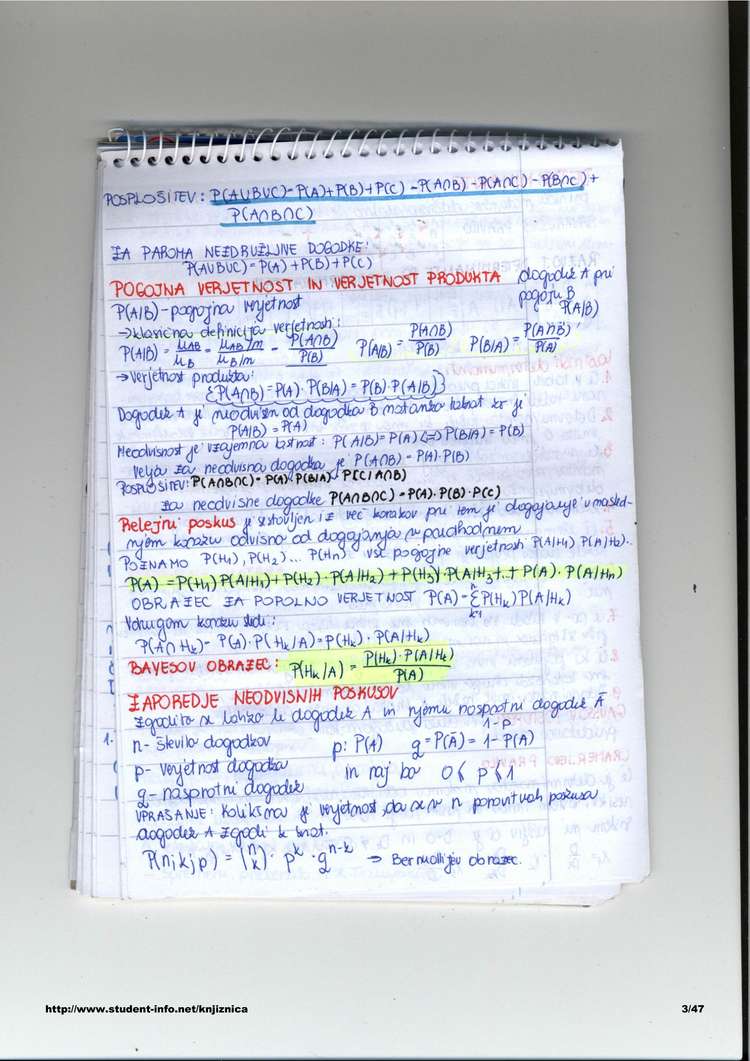 POSPLOŠITEV: P(A∪B∪C)=P(A)+P(B)+P(C) -P(A∩B) -P(A∩C) - P(B∩C) +
P(A∩B∩C)
ZA PAROMA NEZDRUŽLJIVE DOGODKE:
P(A∪B∪C) = P(A)+P(B)+P(C)
POGOJNA VERJETNOST IN VERJETNOST PRODUKTA
dogodek A pri
pogoju B
P(A|B) - pogojna verjetnost
P(A|B)
→ klasična definicija verjetnosti:
P(A|B) = μAB/μB = μAB/m / μB/m = P(A∩B)/P(B) P(A|B) = P(A∩B)/P(B) P(B|A) = P(A∩B)/P(A)
→ Verjetnost produkta:
{P(A∩B)=P(A)·P(B|A)=P(B)·P(A|B)}
Dogodek A je neodvisen od dogodka B natanko takrat ko je
P(A|B) = P(A)
Neodvisnost je vzajemna lastnost: P(A|B)=P(A) <=> P(B|A) = P(B)
velja za neodvisna dogodka je P(A∩B) = P(A)·P(B)
POSPLOŠITEV: P(A∩B∩C)= P(A)·P(B|A)· P(C|A∩B)
za neodvisne dogodke P(A∩B∩C) = P(A)·P(B)·P(C)
Relejni poskus je sestavljen iz več korakov pri tem je dogajanje v nasled-
njem koraku odvisno od dogajanja v predhodnem
POZNAMO P(H1), P(H2) ... P(Hn) vse pogojne verjetnosti P(A|H1) P(A|H2)..
P(A) = P(H1) P(A|H1)+P(H2)·P(A|H2)+P(H3)·P(A|H3+..+ P(A)·P(A|Hn)
OBRAZEC ZA POPOLNO VERJETNOST P(A)=Σ P(Hk) P(A|Hk)
V drugem koraku sledi:
P(A∩Hk)= P(A)·P(Hk|A)=P(Hk)·P(A|Hk)
BAYESOV OBRAZEC: P(Hk|A) = P(Hk)·P(A|Hk)/P(A)
ZAPOREDJE NEODVISNIH POSKUSOV
Zgodita se lahko le dogodek A in njemu nasprotni dogodek Ā
1-p
n- število dogodkov p: P(A) g=P(Ā)= 1-P(A)
p- verjetnost dogodka in naj bo 0< p<1
g- nasprotni dogodek
VPRAŠANJE: Kolikšna je verjetnost, da se v n ponovitvah poskusa
dogodek A zgodi k krat.
P(n;k;p) = (n k)· p^k · g^n-k → Bernullijev obrazec.
1.
http://www.student-info.net/knjiznica
3/47